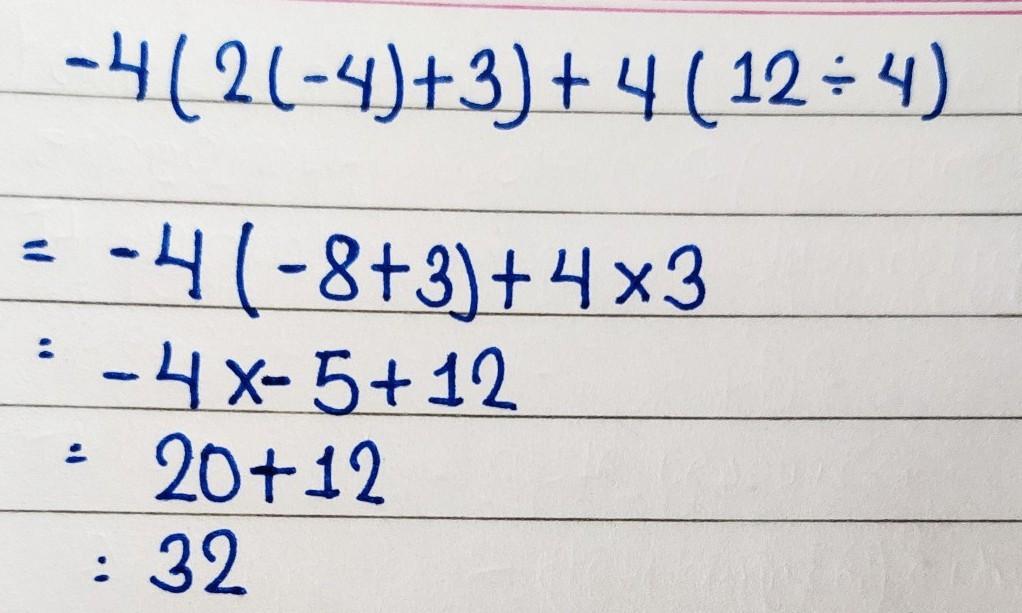 -4(2(-4)+3)+4(12÷4)
= -4(-8+3)+4×3
= -4×-5+12
= 20+12
= 32